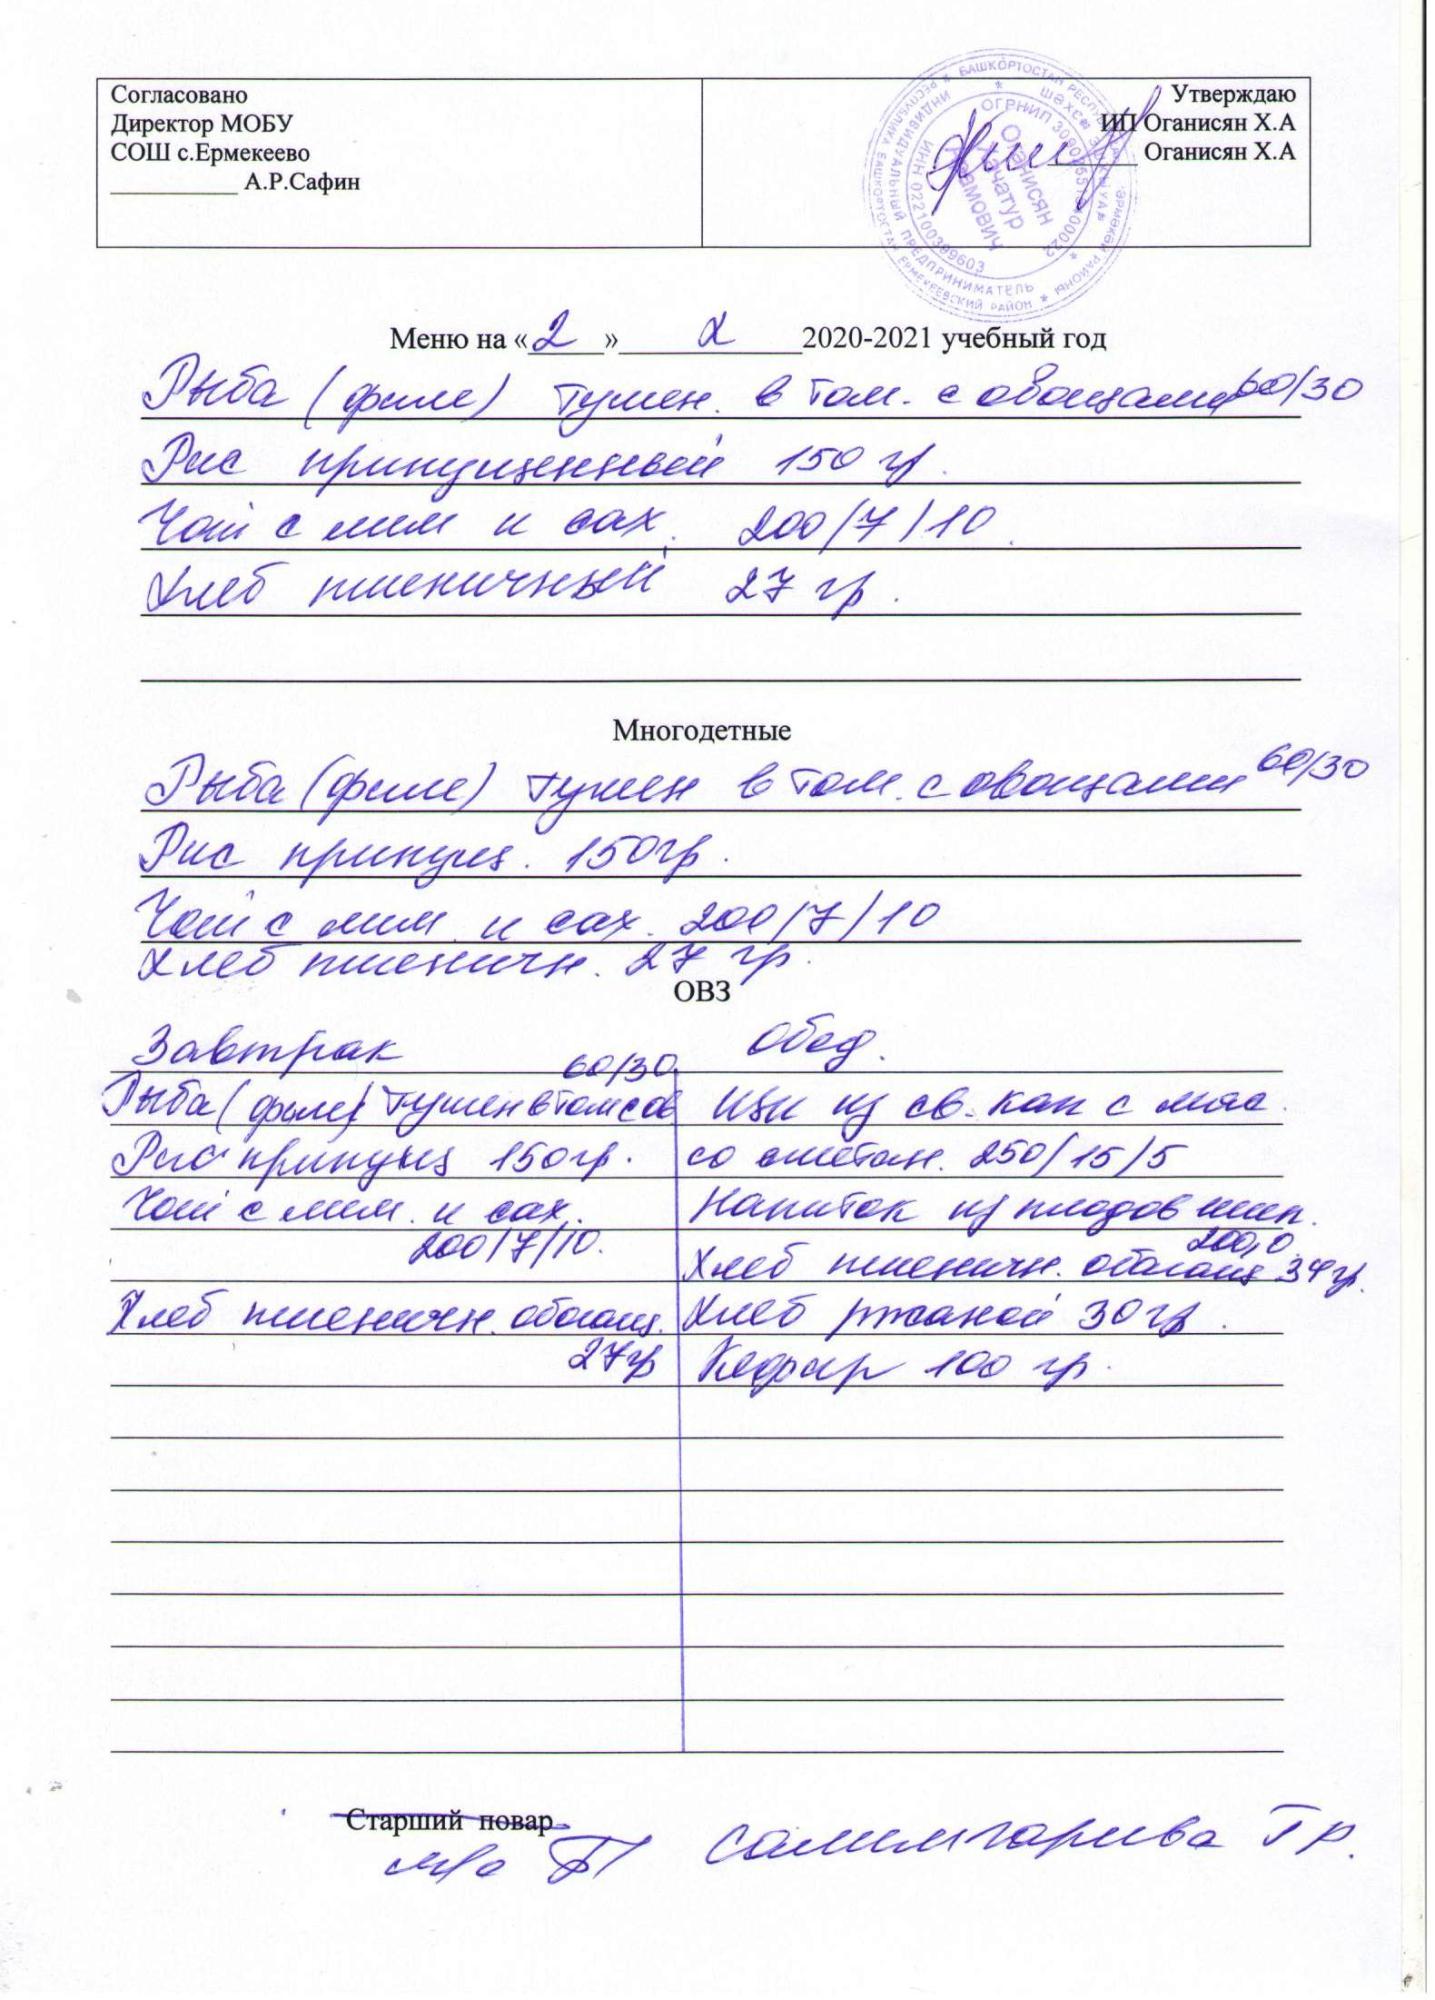 Согласовано
Директор МОБУ
СОШ с.Ермекеево
__________ А.Р.Сафин
Утверждаю
ИП Оганисян Х.А
Оганисян Х.А
БАШКОРТОСТАН
ИНДИВИДУАЛЬНЫЙ ПРЕДПРИНИМАТЕЛЬ
ЕРМЕКЕЕВСКИЙ РАЙОН
ИНН 022100399603
ОГРНИП
Оганисян
Хачатур
Меню на «2» X 2020-2021 учебный год
Рыба (филе) тушен. в том. с овощами 60/30
Рис припущенный 150 гр.
Чай с лим и сах. 200/7/10.
Хлеб пшеничный 27 гр.
Многодетные
Рыба (филе) тушен в том. с овощами 60/30
Рис припущ. 150гр.
Чай с лим. и сах. 200/7/10
Хлеб пшеничн. 27 гр.
ОВЗ
Завтрак
60/30
Рыба (филе) тушен в том с ов
Рис припущ 150гр.
Чай с лим. и сах.
200/7/10.
Хлеб пшеничн. обогащ.
27гр
Обед.
Щи из св. кап с мяс.
со сметан. 250/15/5
Напиток из плодов шип.
200,0.
Хлеб пшеничн. обогащ 34гр.
Хлеб ржаной 30гр.
Кефир 100 гр.
Старший повар
Салимгариева Г Р.